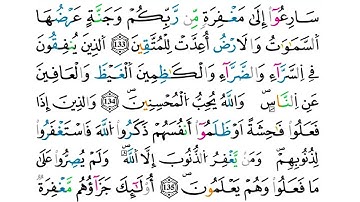 سَارِعُوٓا۟ إِلَىٰ مَغْفِرَةٍ مِّن رَّبِّكُمْ وَجَنَّةٍ عَرْضُهَا
ٱلسَّمَٰوَٰتُ وَٱلْأَرْضُ أُعِدَّتْ لِلْمُتَّقِينَ ١٣٣ ٱلَّذِينَ يُنفِقُونَ
فِى ٱلسَّرَّآءِ وَٱلضَّرَّآءِ وَٱلْكَٰظِمِينَ ٱلْغَيْظَ وَٱلْعَافِينَ
عَنِ ٱلنَّاسِ ۗ وَٱللَّهُ يُحِبُّ ٱلْمُحْسِنِينَ ١٣٤ وَٱلَّذِينَ إِذَا
فَعَلُوا۟ فَٰحِشَةً أَوْ ظَلَمُوٓا۟ أَنفُسَهُمْ ذَكَرُوا۟ ٱللَّهَ فَٱسْتَغْفَرُوا۟
لِذُنُوبِهِمْ وَمَن يَغْفِرُ ٱلذُّنُوبَ إِلَّا ٱللَّهُ وَلَمْ يُصِرُّوا۟ عَلَىٰ
مَا فَعَلُوا۟ وَهُمْ يَعْلَمُونَ ١٣٥ أُو۟لَٰٓئِكَ جَزَآؤُهُم مَّغْفِرَةٌ